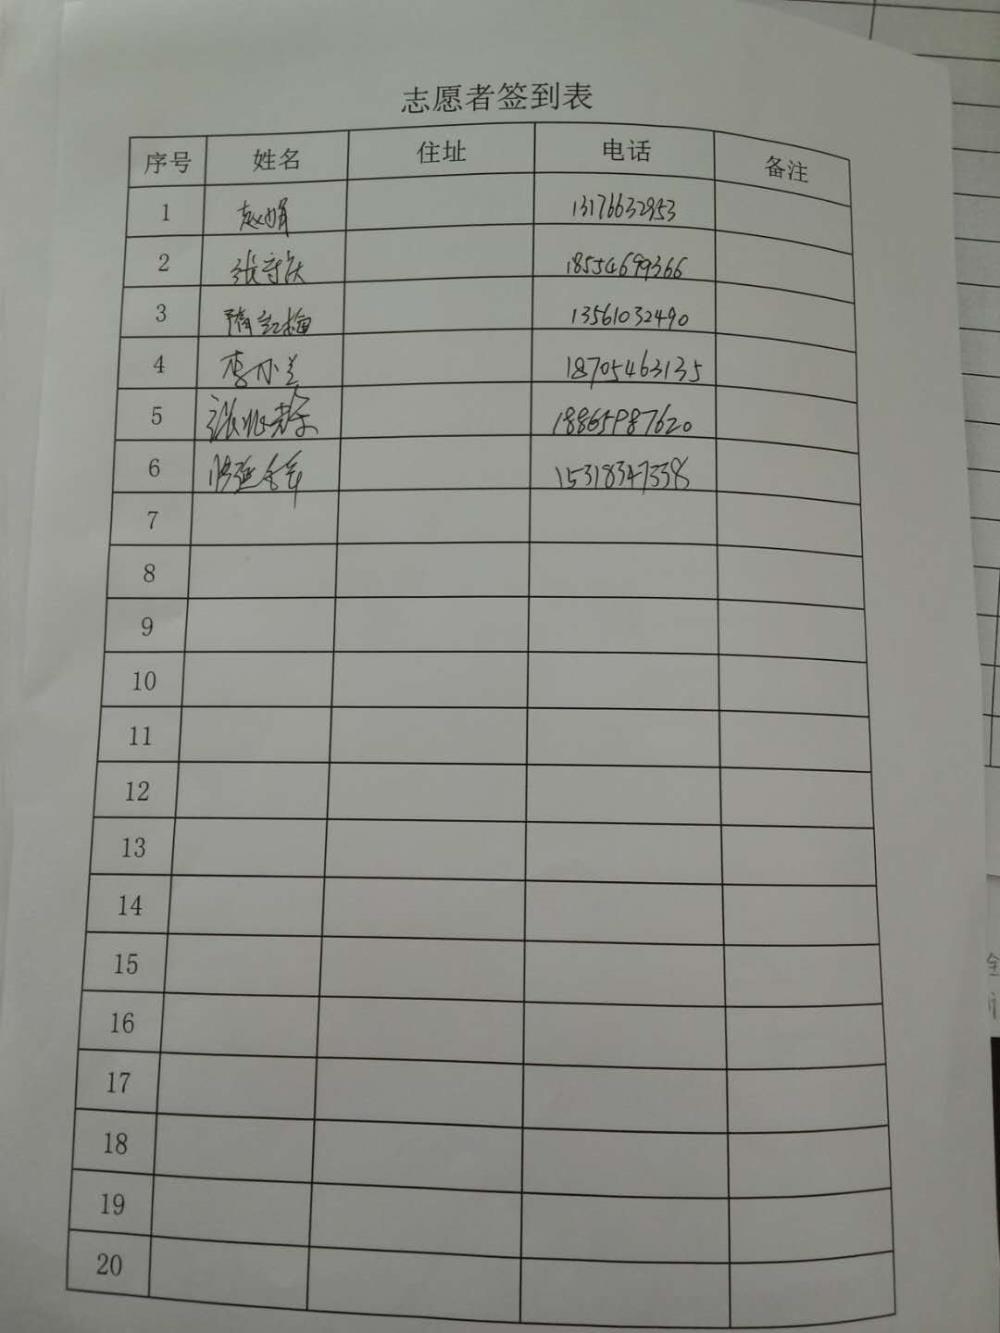 志愿者签到表
序号 姓名 住址 电话 备注
1 赵娟 13176632953
2 张守庆 18554699366
3 隋红梅 13561032490
4 李小兰 18705463135
5 18865987620
6 15318347338
7
8
9
10
11
12
13
14
15
16
17
18
19
20